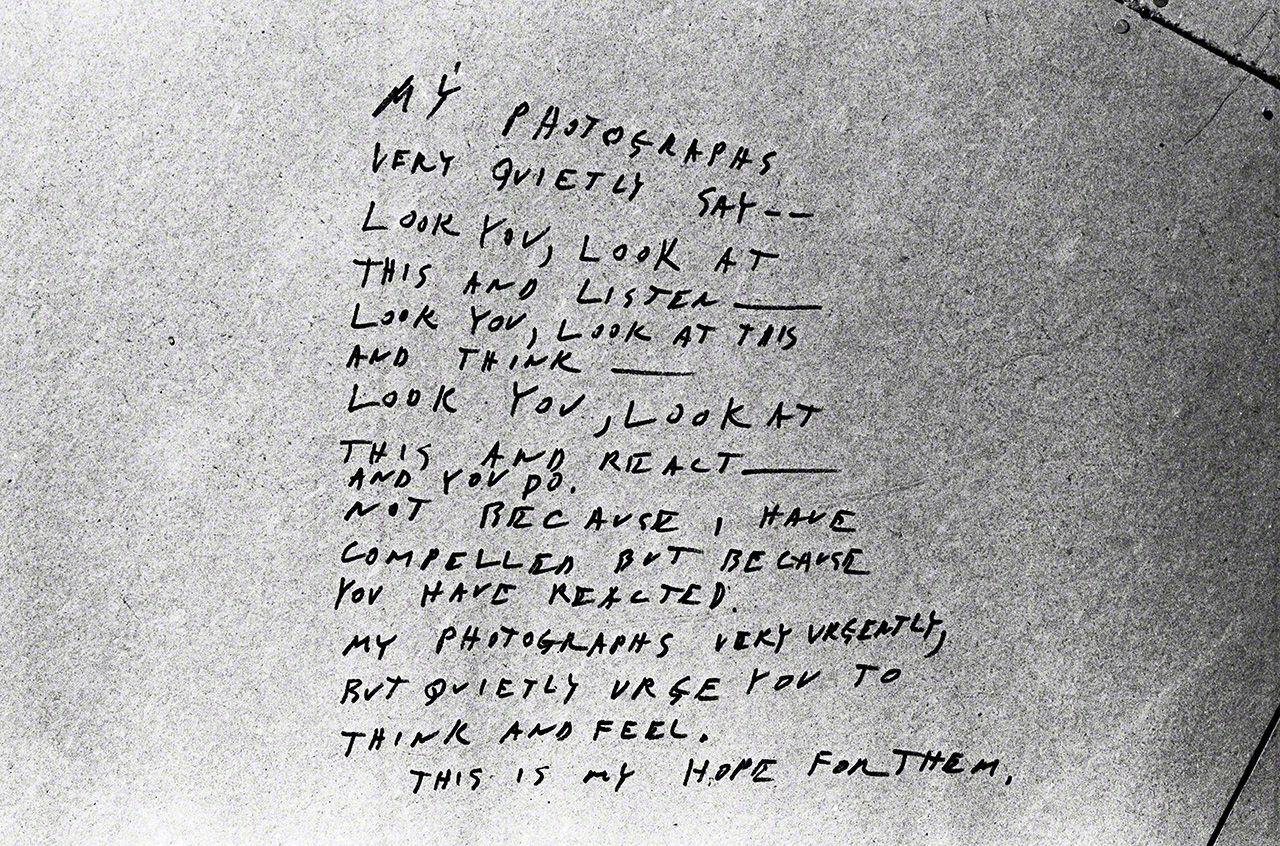 MY PHOTOGRAPHS
VERY QUIETLY SAY--
LOOK YOU, LOOK AT
THIS AND LISTEN——
LOOK YOU, LOOK AT THIS
AND THINK ——
LOOK YOU, LOOK AT
THIS AND REACT——
AND YOU DO.
NOT BECAUSE I HAVE
COMPELLED BUT BECAUSE
YOU HAVE REACTED.
MY PHOTOGRAPHS VERY URGENTLY,
BUT QUIETLY URGE YOU TO
THINK AND FEEL.
THIS IS MY HOPE FOR THEM.